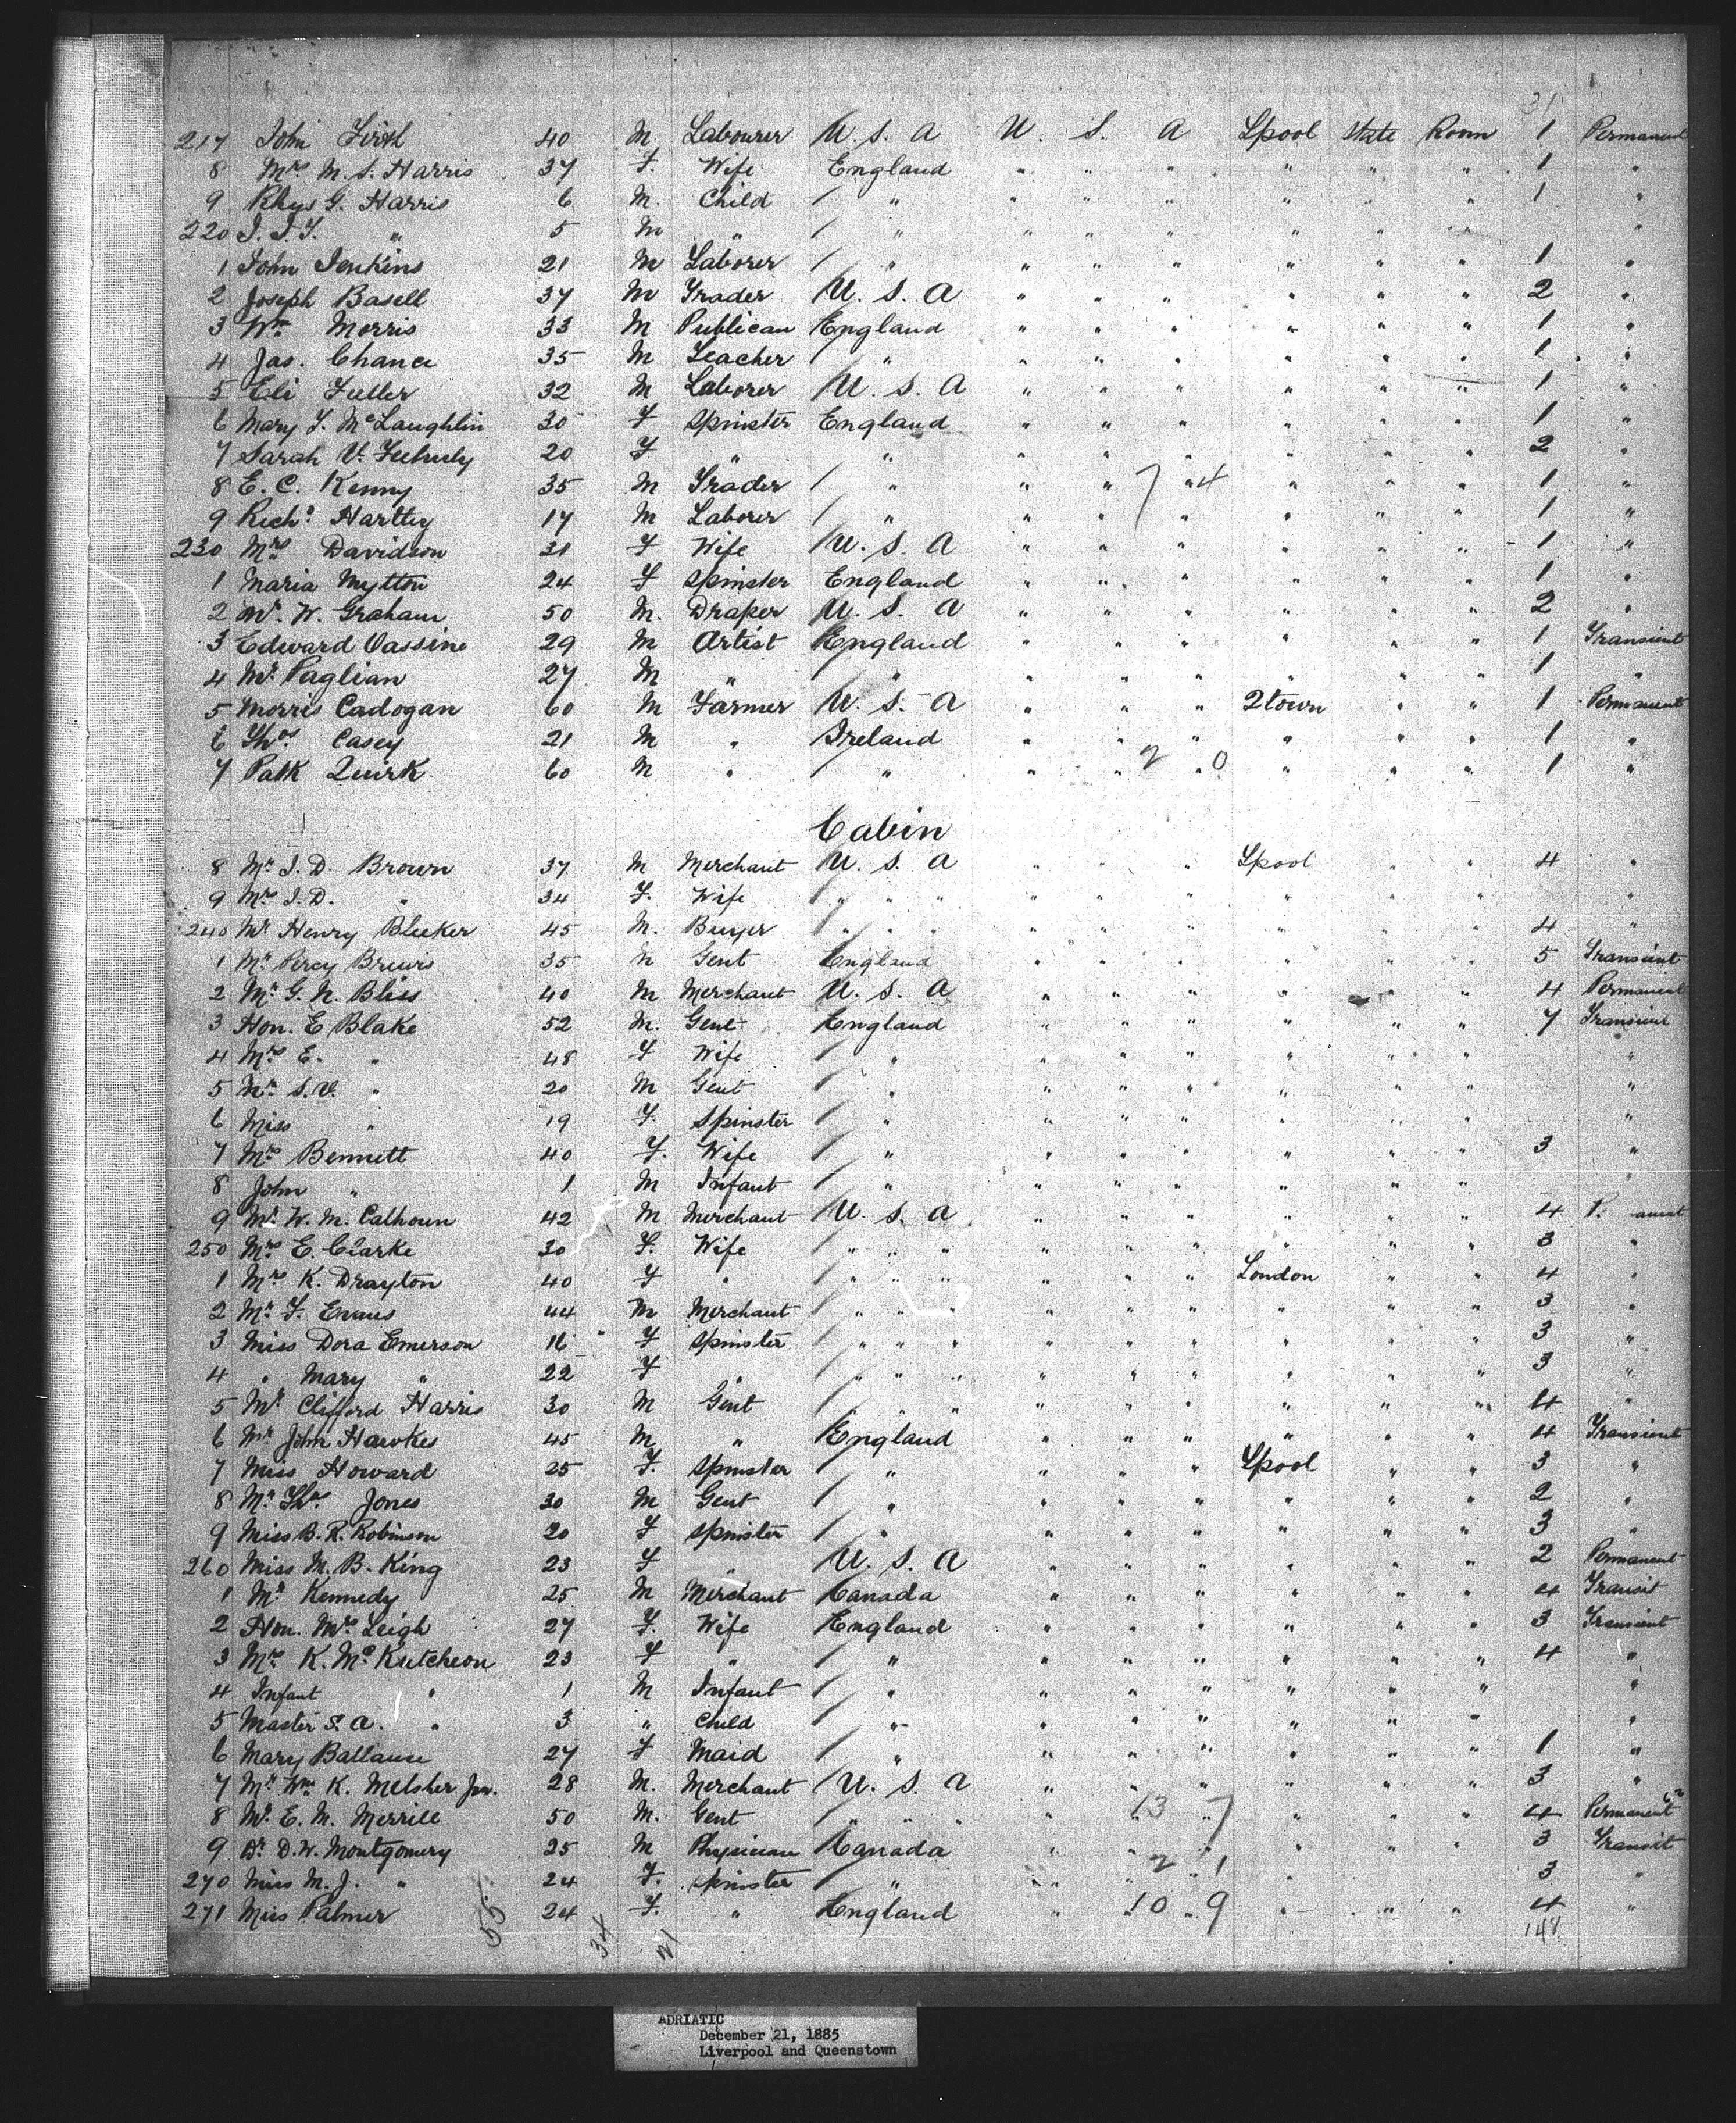 31
217 John Firth 40 M Labourer U. S. A U. S. A Lpool State Room 1 Permanent
8 Mrs M. S. Harris 37 F. Wife England " " " " " " 1 "
9 Rhys G. Harris 6 M. Child " " " " " " " 1 "
220 J. J. Y. " 5 M " " " " " " " " "
1 John Jenkins 21 M Laborer " " " " " " " 1 "
2 Joseph Basell 37 M Trader U. S. A " " " " " " 2 "
3 Wm Morris 33 M Publican England " " " " " " 1 "
4 Jas. Chance 35 M Teacher " " " " " " " 1 "
5 Eli Fuller 32 M Laborer U. S. A " " " " " " 1 "
6 Mary T. McLaughlin 30 F Spinster England " " " " " " 1 "
7 Sarah V. 20 F " " " " " " " " 2 "
8 E. C. Kenny 35 M Trader " " " 7 " 4 " " " 1 "
9 Richd Hartley 17 M Laborer " " " " " " " 1 "
230 Mrs Davidson 31 F Wife U. S. A " " " " " " 1 "
1 Maria Mytton 24 F Spinster England " " " " " " 1 "
2 Mr. W. Graham 50 M. Draper U. S. A " " " " " " 2 "
3 Edward Vassine 29 M Artist England " " " " " " 1 Transient
4 Mr. Paglian 27 M " " " " " " " " 1 "
5 Morris Cadogan 60 M Farmer U. S. A " " " Qtown " " 1 Permanent
6 Thos. Casey 21 M " Ireland " " " " " " 1 "
7 Patk Quirk 60 M " " " " 2 " 0 " " " 1 "
Cabin
8 Mr. J. D. Brown 37 M Merchant U. S. A " " " Lpool " " 4 "
9 Mrs J. D. " 34 F. Wife " " " " " " " " " "
240 Mr Henry Bleeker 45 M. Buyer " " " " " " " " " 4 "
1 Mr. Percy Brewis 35 M Gent England " " " " " " 5 Transient
2 Mr. G. N. Bliss 40 M Merchant U. S. A " " " " " " 4 Permanent
3 Hon. E Blake 52 M. Gent England " " " " " " 7 Transient
4 Mrs E. " 48 F Wife " " " " " " " "
5 Mr. S. V. " 20 M Gent " " " " " " " "
6 Miss " 19 F. Spinster " " " " " " " "
7 Mrs Bennett 40 F. Wife " " " " " " " 3 "
8 John " 1 M Infant " " " " " " " "
9 Mr. W. M. Calhoun 42 M Merchant U. S. A " " " " " " 4 P. anent
250 Mrs E. Clarke 30 F. Wife " " " " " " " " " 3 "
1 Mrs K. Drayton 40 F " " " " " " " London " " 4 "
2 Mr. F. Evans 44 M Merchant " " " " " " " " " 3 "
3 Miss Dora Emerson 16 F Spinster " " " " " " " " " 3 "
4 " Mary " 22 F " " " " " " " " " " 3 "
5 Mr Clifford Harris 30 M Gent " " " " " " " " " 4 "
6 Mr John Hawkes 45 M " England " " " " " " 4 Transient
7 Miss Howard 25 F. Spinster " " " " Lpool " " 3 "
8 Mr. Thos. Jones 30 M Gent " " " " " " " 2 "
9 Miss B. R. Robinson 20 F Spinster " " " " " " " 3 "
260 Miss M. B. King 23 F " U. S. A " " " " " " 2 Permanent
1 Mr Kennedy 25 M Merchant Canada " " " " " " 4 Transit
2 Hon. Mrs Leigh 27 F. Wife England " " " " " " 3 Transient
3 Mrs K. McKutcheon 23 F " " " " " " " " 4 "
4 Infant " 1 M Infant " " " " " " " "
5 Master S. A. " 3 " Child " " " " " " " "
6 Mary Ballance 27 F Maid " " " " " " " 1 "
7 Mr. Wm K. Melsher Jnr. 28 M. Merchant U. S. A " " " " " " 3 "
8 Mr. E. M. Merrill 50 M. Gent " " " " 13 " 7 " " " 4 Permanent
9 Dr. D. W. Montgomery 25 M Physician Canada " " " " " " 3 Transit
270 Miss M. J. " 24 F. Spinster " " 2 " 1 " " " 3 "
271 Miss Palmer 24 F. " England " 10 " 9 " " " 4 "
55 34 21 148
ADRIATIC
December 21, 1885
Liverpool and Queenstown